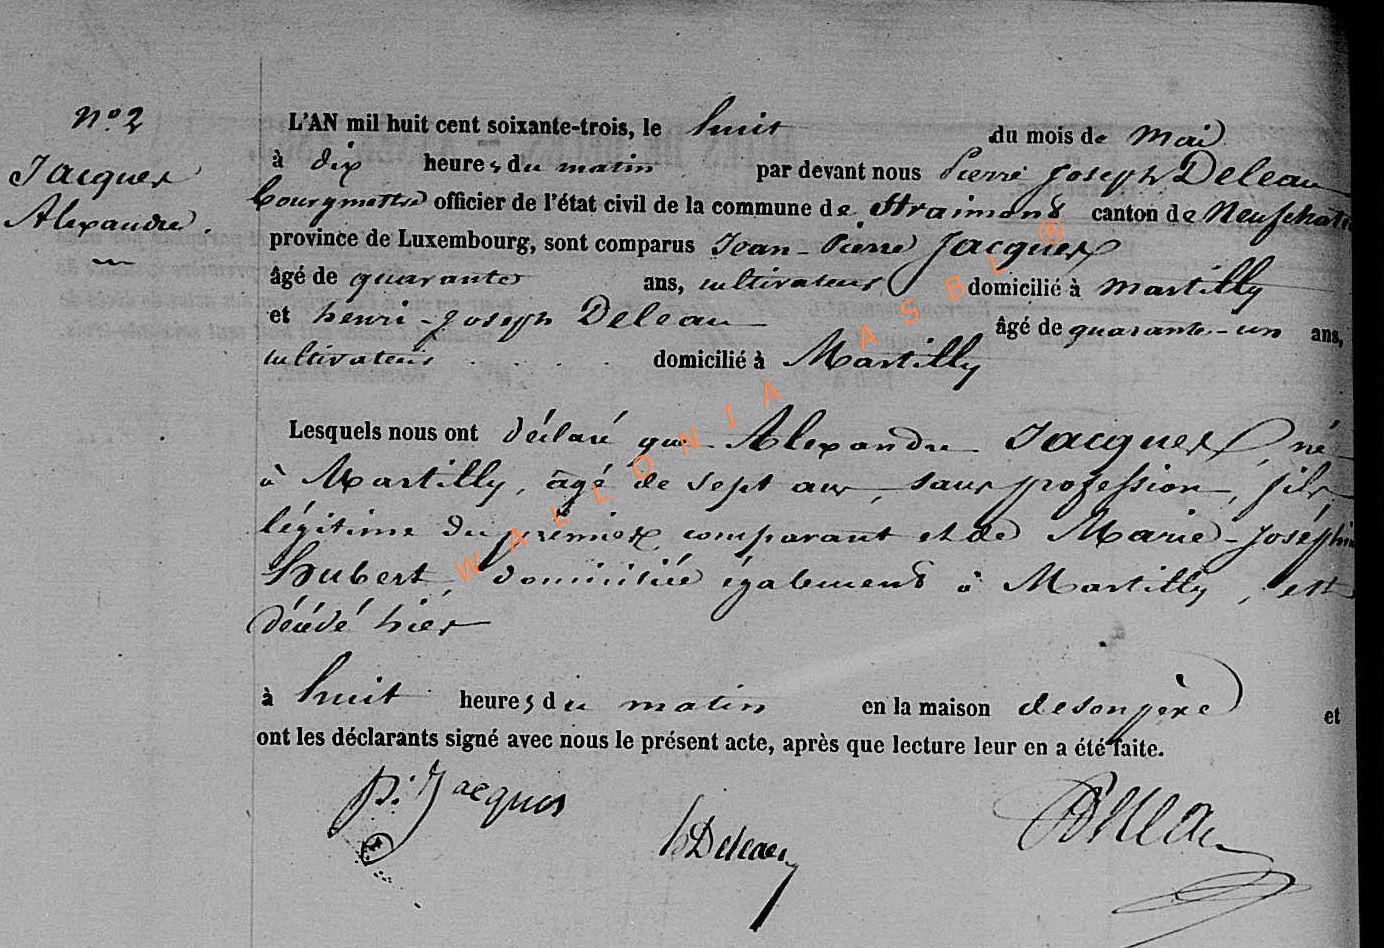 N° 2
Jacques
Alexandre.
L'AN mil huit cent soixante-trois, le huit du mois de mai
à dix heures du matin par devant nous Pierre Joseph Deleau
bourgmestre officier de l'état civil de la commune de Straimont canton de Neufchate
province de Luxembourg, sont comparus Jean-Pierre Jacques
âgé de quarante ans, cultivateur domicilié à Martilly
et henri-Joseph Deleau âgé de quarante-un ans,
cultivateur domicilié à Martilly
Lesquels nous ont déclaré que Alexandre Jacques, né
à Martilly, âgé de sept ans, sans profession, fils
légitime du premier comparant et de Marie-Joséphine
Hubert, domiciliée également à Martilly, est
décédé hier
à huit heures du matin en la maison de son père et
ont les déclarants signé avec nous le présent acte, après que lecture leur en a été faite.
p. Jacques
h Deleau
Deleau
WALLONIA ASBL